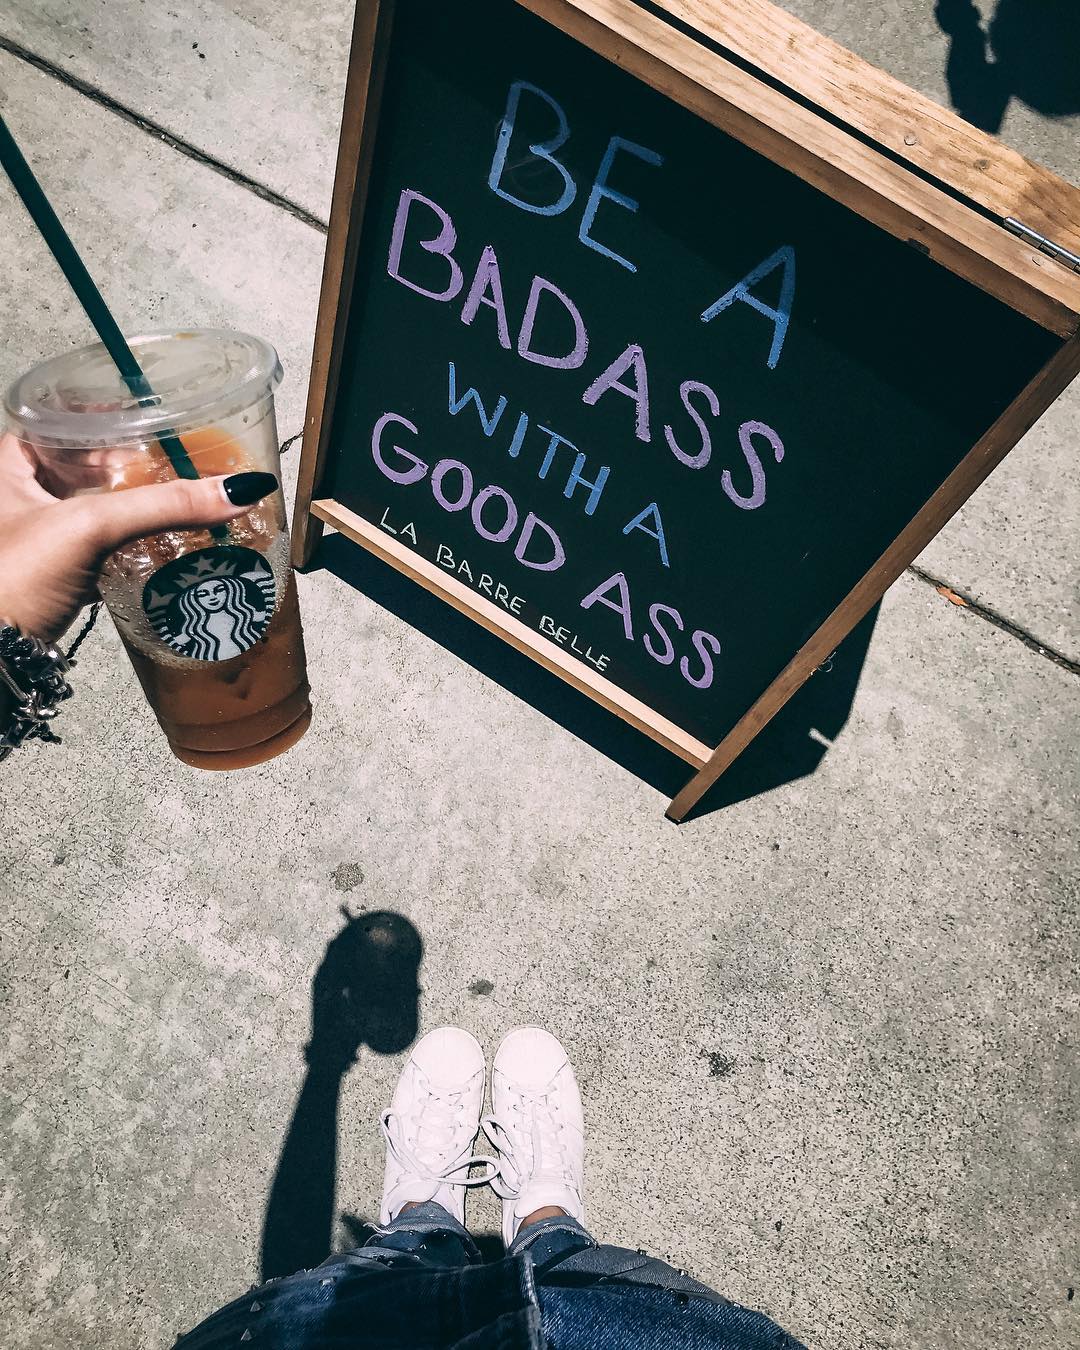 BE A
BADASS
WITH A
GOOD ASS
LA BARRE BELLE